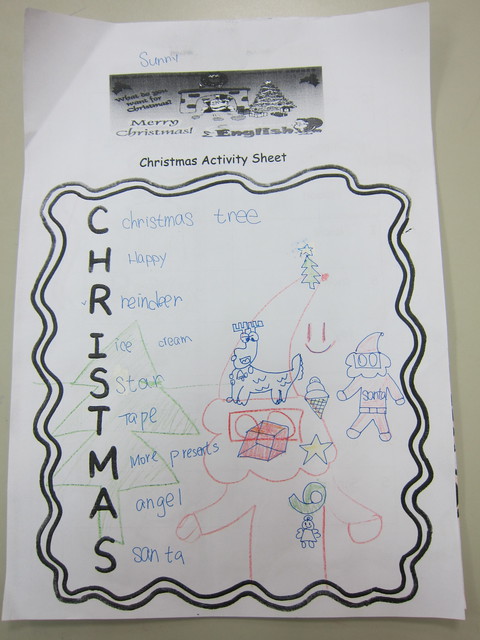 Sunny
What do you
want for
Christmas?
Merry
Christmas!
English
Christmas Activity Sheet
C christmas tree
H Happy
R reindeer
I ice cream
S Star
T Tape
M More presents
A angel
S santa
santa